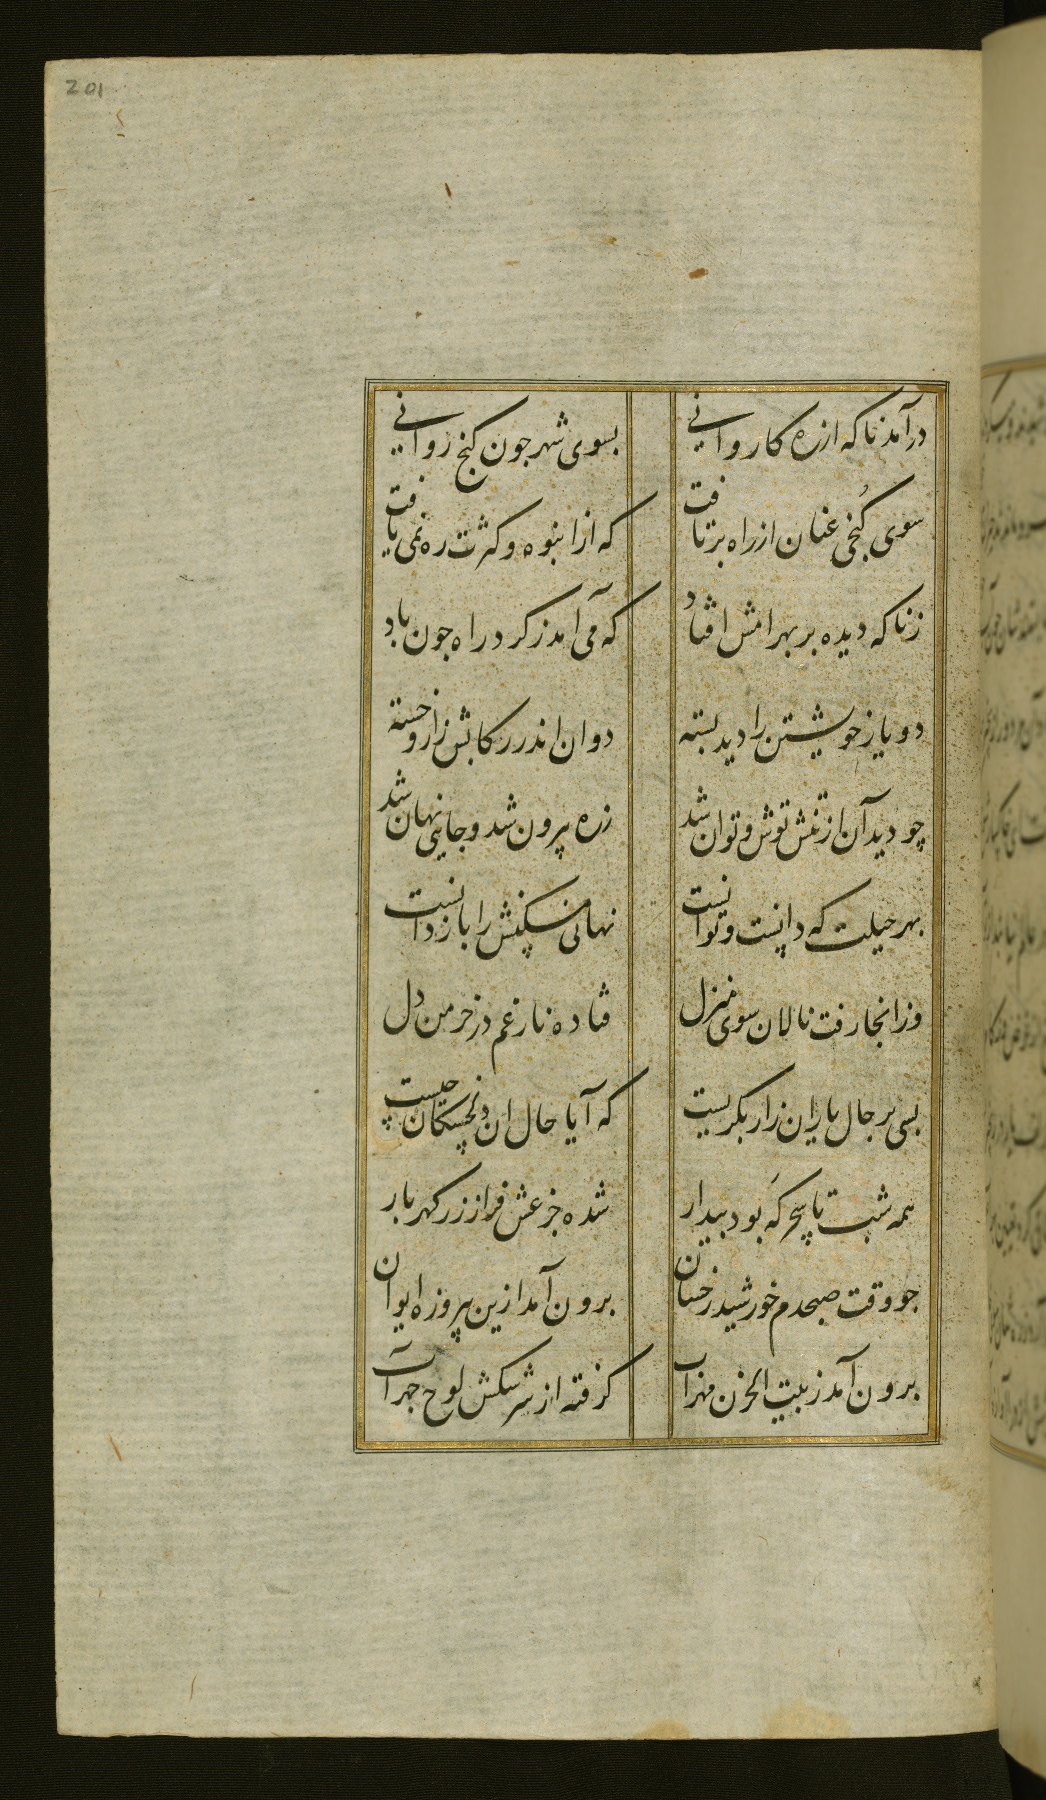 201
درآمد ناکه از ره کاروانی
بسوی شهر جون کنج روانی
سوی کُنجی عنان از راه برتافت
که از انبوه و کثرت ره نمی یافت
زناکه دیده بر بهرامش افتاد
که می آمد زکرد راه جون باد
دو یار خویشتن را دید بسته
دوان اندر رکابش زار و خسته
چو دید آن از تنش توش و توان شد
زره بیرون شد و جایی نهان شد
بهر حیلت که دانست و توانست
نهانی مسکنش را باز دانست
وز انجا رفت نالان سوی منزل
فتاده نار غم در خرمن دل
بسی بر حال یاران زار بکریست
که آیا حال ان دلخستکان چیست
همه شب تا سحر که بود بیدار
شده جزعش فراز زر کهربار
جو وقت صبحدم خورشید رخشان
برون آمد ازین پیروزه ایوان
برون آمد ز بیت الحزن مهراب
کرفته از سرشکش لوح جهر آب